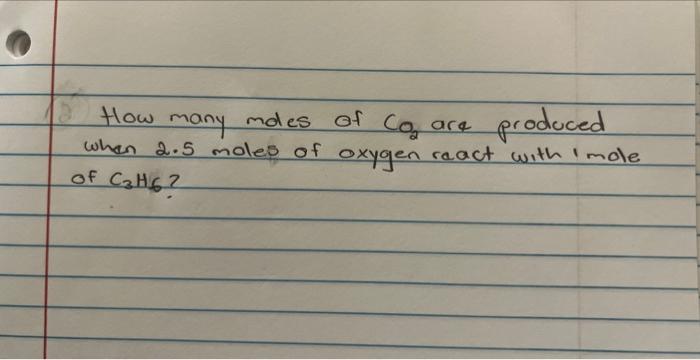 How many moles of CO₂ are produced
when 2.5 moles of oxygen react with 1 mole
of C₃H₆?